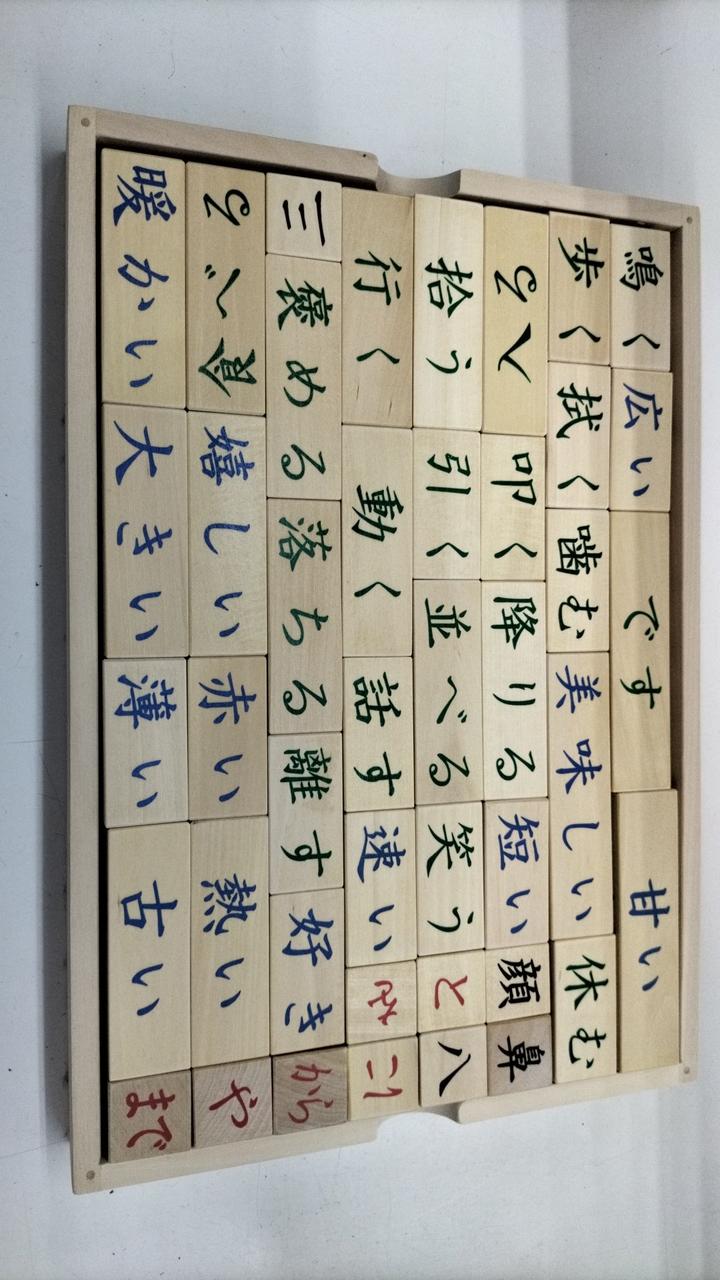 鳴く 広い です 甘い
歩く 拭く 噛む 美味しい 休む
入る 叩く 降りる 短い 顔 鼻
拾う 引く 並べる 笑う と 八
行く 動く 話す 速い に
三 褒める 落ちる 離す 好き から
食べる 嬉しい 赤い 熱い や
暖かい 大きい 薄い 古い まで